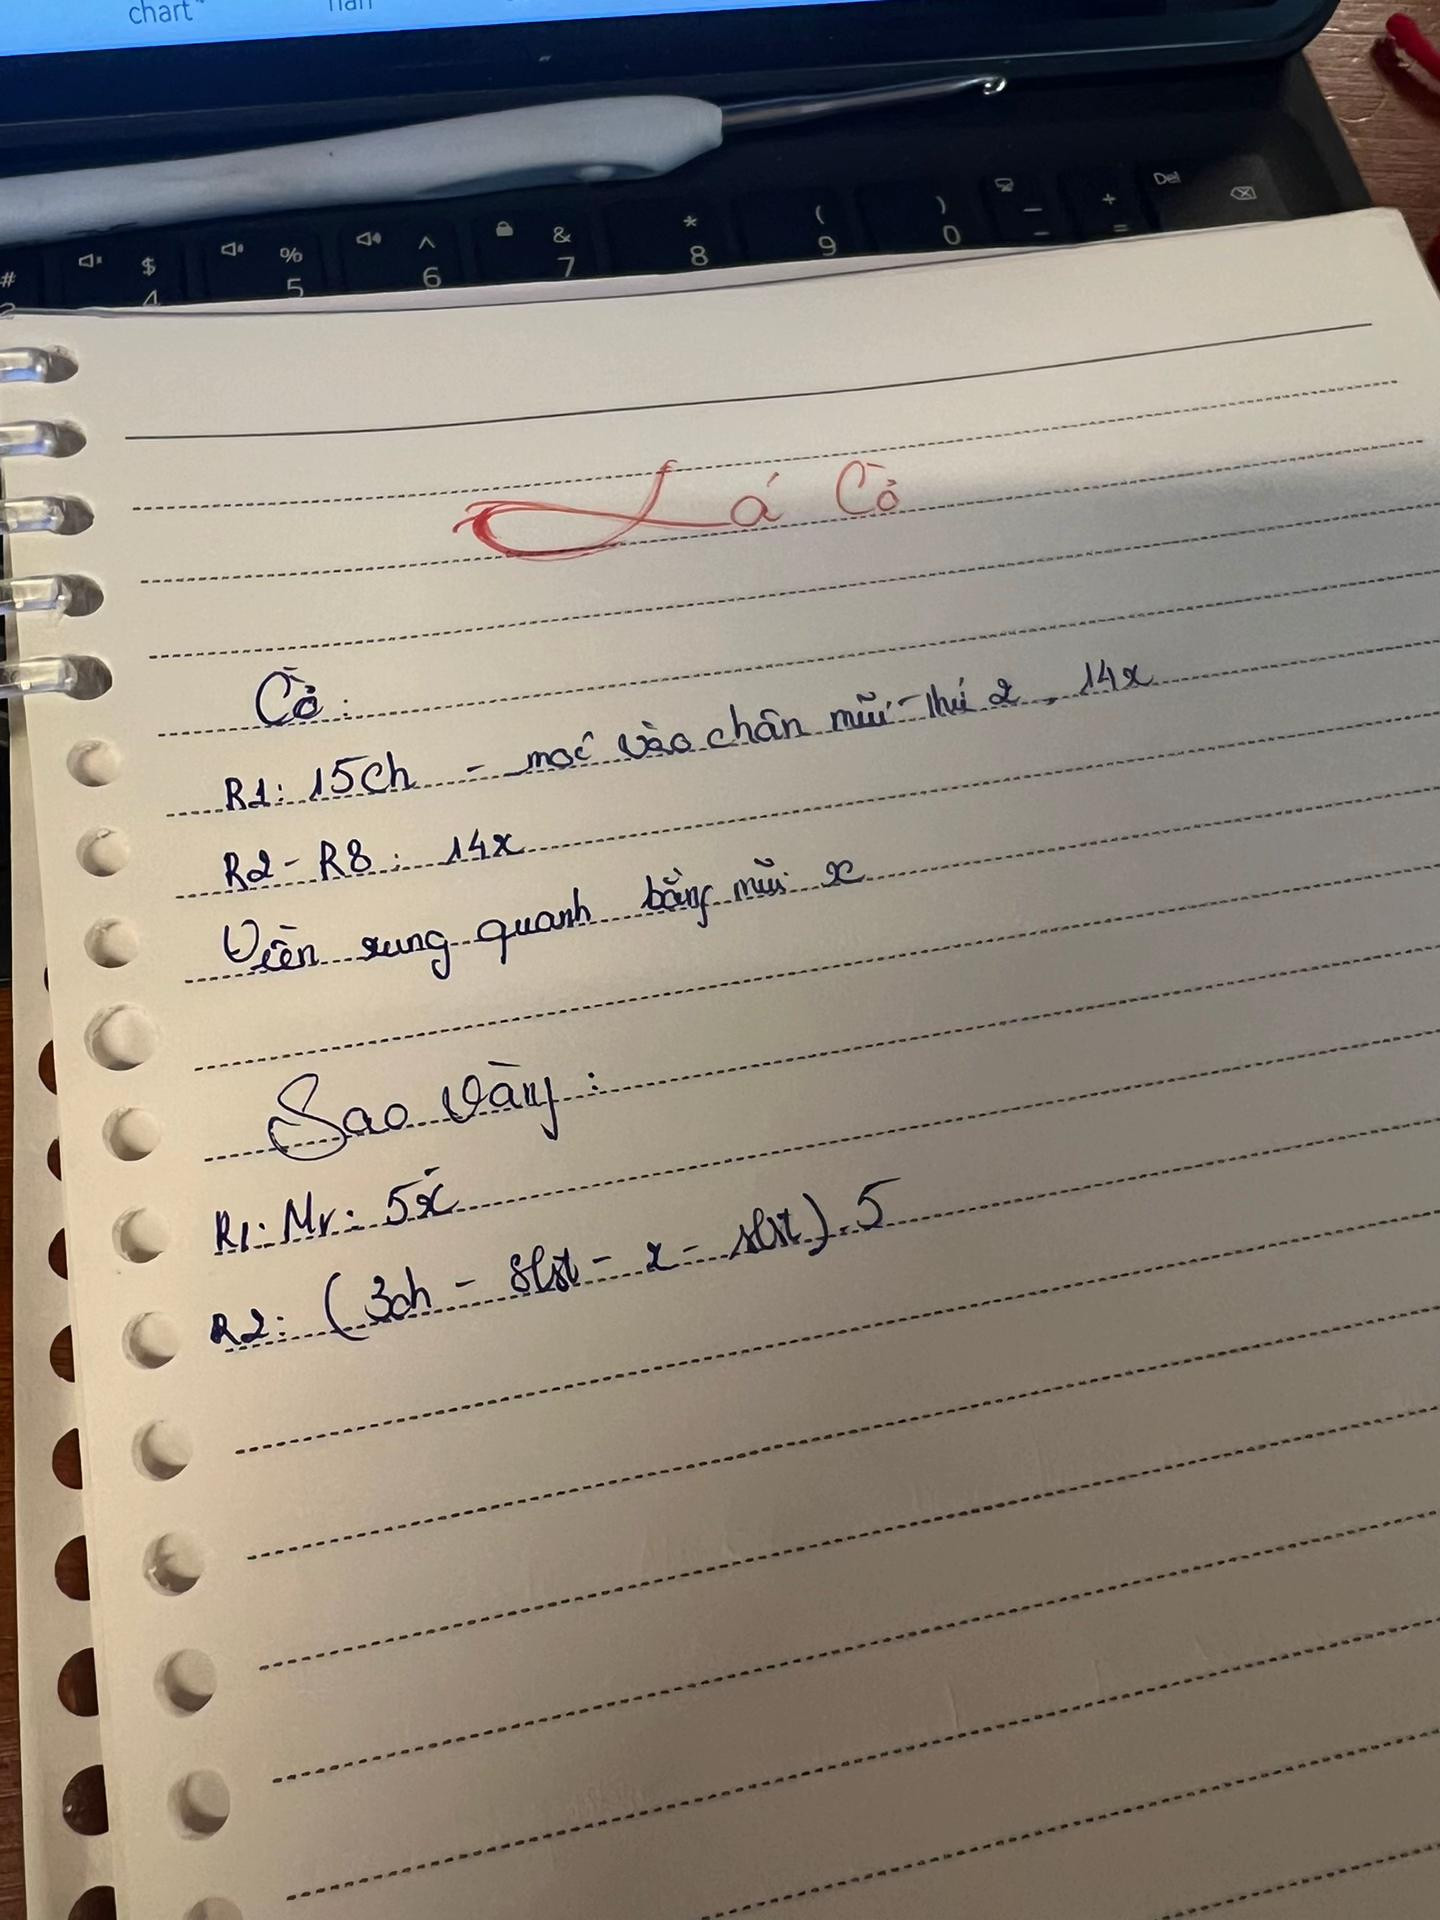 chart"
han
Del
# $ % ^ & * ( ) — +
4 5 6 7 8 9 0 - =
Lá Cờ
Cờ:
R1: 15ch - móc vào chân mũi thứ 2, 14x
R2-R8: 14x
Viền xung quanh bằng mũi x
Sao Vàng:
R1: Mr: 5x
R2: (3ch - slst - x - slst).5